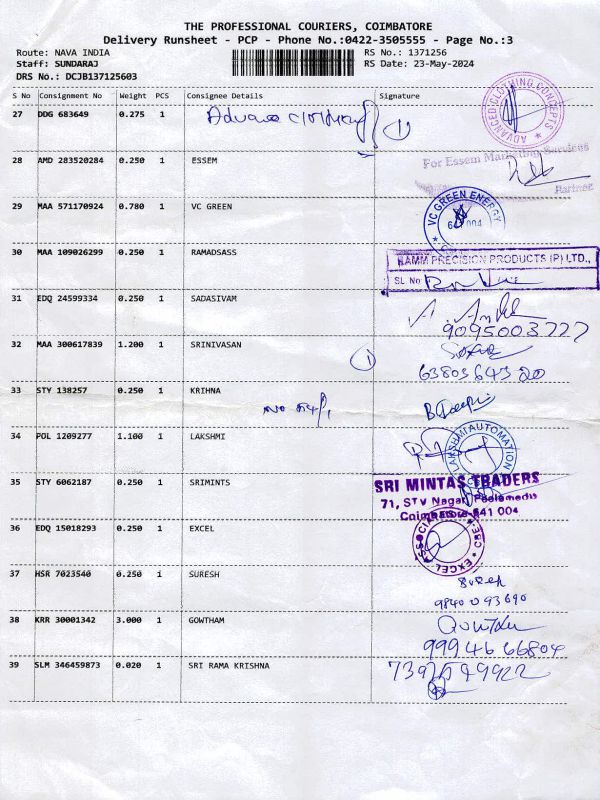 THE PROFESSIONAL COURIERS, COIMBATORE
Delivery Runsheet - PCP - Phone No.:0422-3505555 - Page No.:3
Route: NAVA INDIA
RS No.: 1371256
Staff: SUNDARAJ
RS Date: 23-May-2024
DRS No.: DCJB137125603
S No Consignment No Weight PCS Consignee Details Signature
27 DDG 683649 0.275 1 Advance Clothing 1
ADVANCED CLOTHING CONCEPTS
28 AMD 283520284 0.250 1 ESSEM
For Essem Marketing Services
Partner
29 MAA 571170924 0.780 1 VC GREEN
VC GREEN ENERGY
30 MAA 109026299 0.250 1 RAMADSASS
RAMM PRECISION PRODUCTS (P) LTD.,
SL No
31 EDQ 24599334 0.250 1 SADASIVAM
9095003777
32 MAA 300617839 1.200 1 SRINIVASAN 1
63803 643 20
33 STY 138257 0.250 1 KRIHNA
34 POL 1209277 1.100 1 LAKSHMI
LAKSHMI AUTOMATION
35 STY 6062187 0.250 1 SRIMINTS
SRI MINTAS TRADERS
71, STV Nagar, Peelamedu
Coimbatore-641 004
36 EDQ 15018293 0.250 1 EXCEL
EXCEL ASSOCIATES
CBE
37 HSR 7023540 0.250 1 SURESH
Suresh
9840 093690
38 KRR 30001342 3.000 1 GOWTHAM
Gowtham
99946 66804
39 SLM 346459873 0.020 1 SRI RAMA KRISHNA